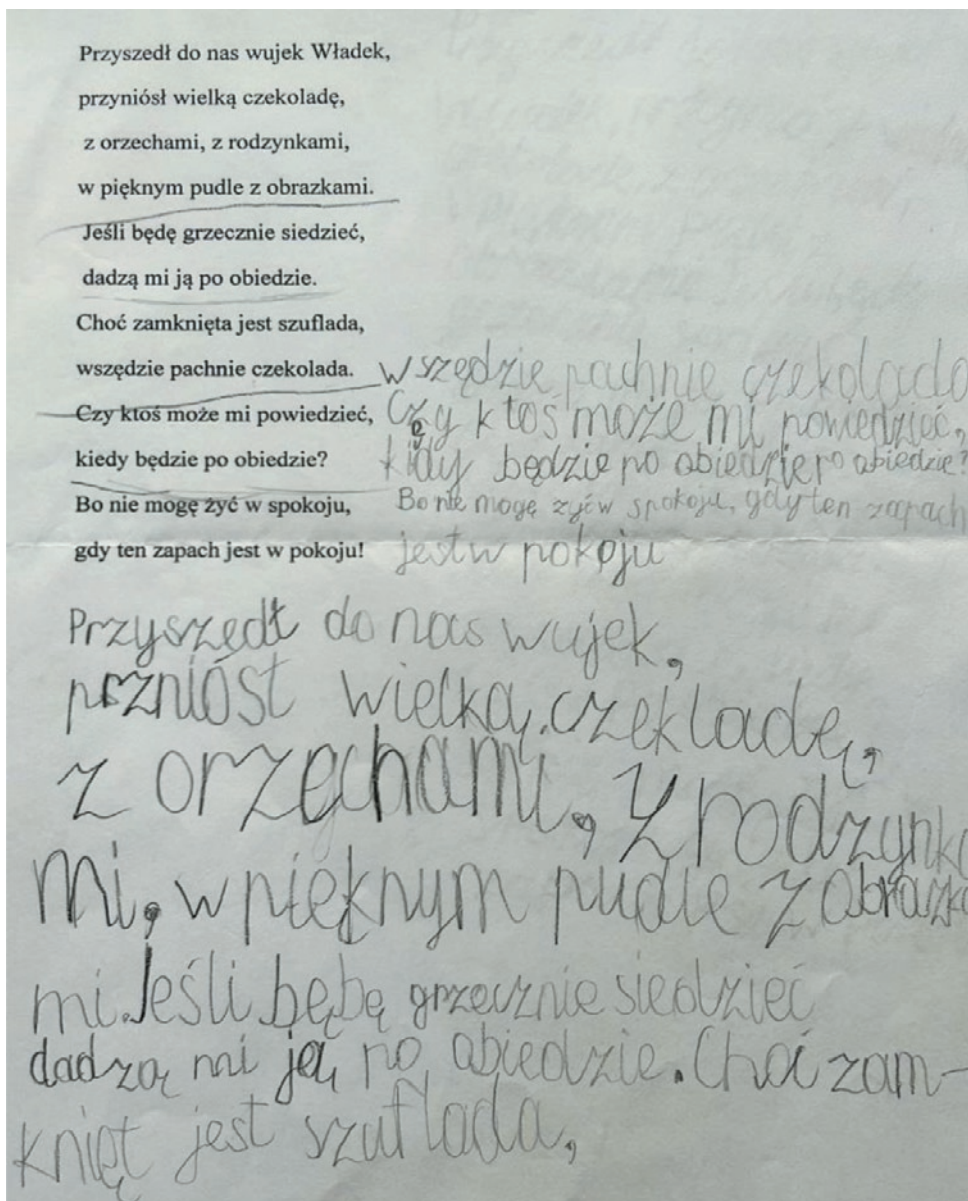 Przyszedł do nas wujek Władek,
przyniósł wielką czekoladę,
z orzechami, z rodzynkami,
w pięknym pudle z obrazkami.
Jeśli będę grzecznie siedzieć,
dadzą mi ją po obiedzie.
Choć zamknięta jest szuflada,
wszędzie pachnie czekolada.
Czy ktoś może mi powiedzieć,
kiedy będzie po obiedzie?
Bo nie mogę żyć w spokoju,
gdy ten zapach jest w pokoju!
wszędzie pachnie czekolado
Czy ktoś może mi powiedzieć,
kidy będzie po obiedzie po obiedzie?
Bo nie mogę zyć w spokoju, gdy ten zapach
jest w pokoju
Przyszedł do nas wujek,
przniósł wielką czekladę,
z orzechami, z rodzynka
mi, w pięknym pudle z obrazka
mi. Jeśli bębę grzecznie siedzieć
dadzą mi ją po obiedzie. Choć zam-
knięt jest szuflada,